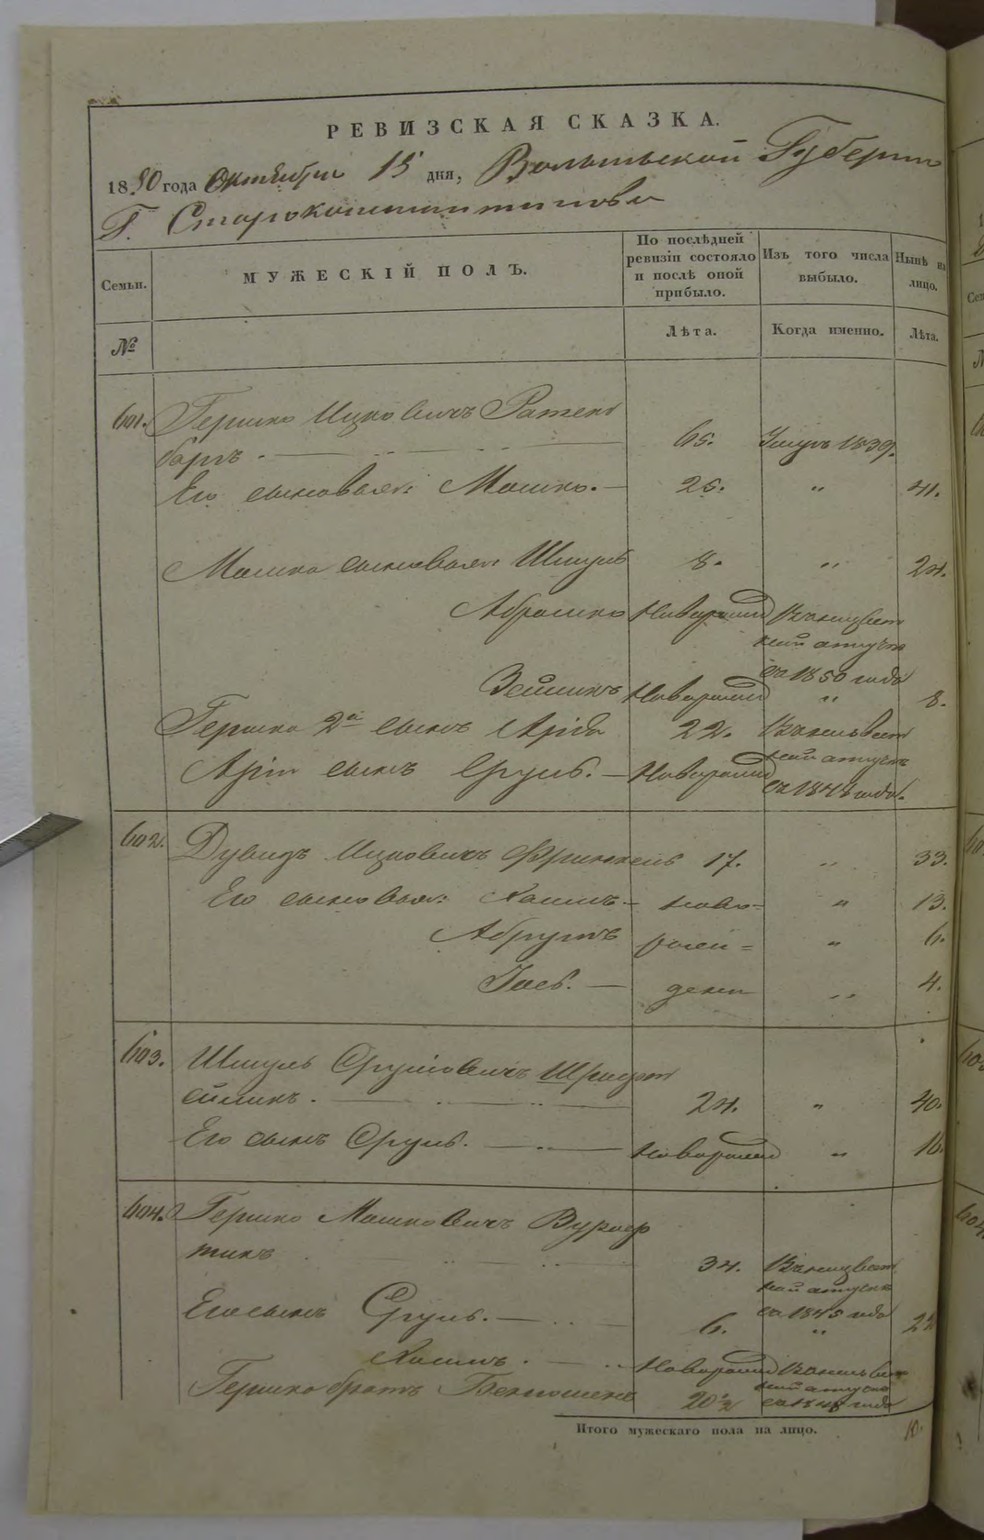 РЕВИЗСКАЯ СКАЗКА.
1850 года Октября 15 дня, Волынской Губернии
Г. Староконстантинова
Семьи.
МУЖЕСКІЙ ПОЛЪ.
По послѣдней ревизіи состояло и послѣ оной прибыло.
Изъ того числа выбыло.
Нынѣ на лицо.
№
Лѣта.
Когда именно.
Лѣта.
601. Гершко Ицковичъ
65. Умеръ 1839.
Его сыновья: Мошко. 25. " 41.
Мошка сыновья: Шмуль 8. " 24.
Абрашко Новорожд В неизвест
ной отлучке
съ 1850 года
Зейликъ Новорожд " 8.
Гершка 2й сынъ Арія 22. В неизвест
ной отлучке
Арія сынъ Сруль. Новорожд
602. Дувидъ Ицковичъ 17. " 33.
Его сыновья: Хаимъ ново- " 13.
" 6.
Іось. дены " 4.
603. Шмуль Сруліовичъ
24. " 40.
Его сынъ Сруль. Новорожд " 16.
604. Гершко Мошковичъ
34. В неизвест
ной отлучке
съ 1845 года
Его сынъ Сруль. 6. " 22
Хаимъ. Новорожд В неизвест
ной отлучке
Гершка братъ 20½ года
Итого мужескаго пола на лицо. 10.